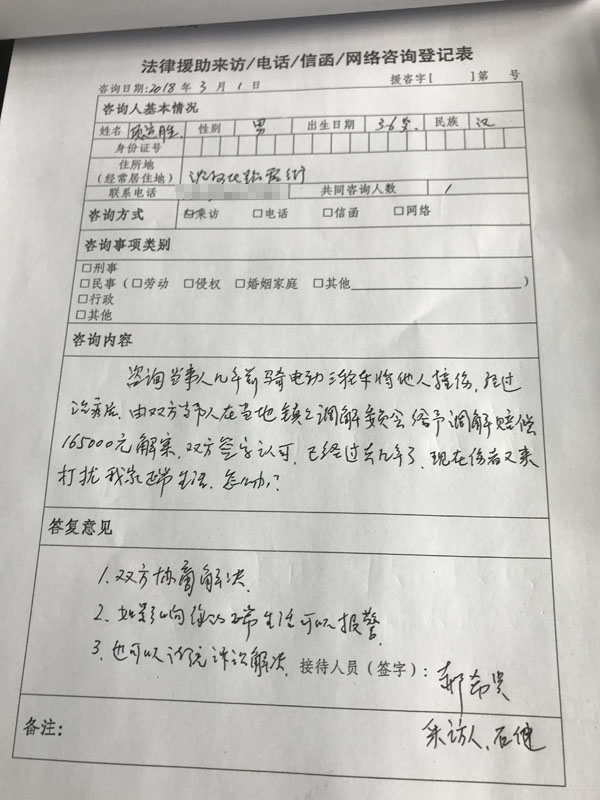 法律援助来访/电话/信函/网络咨询登记表
咨询日期:2018年3月1日 援咨字[ ]第 号
咨询人基本情况
姓名 性别 男 出生日期 36岁 民族 汉
身份证号
住所地
(经常居住地)
联系电话 共同咨询人数 1
咨询方式 ☑来访 □电话 □信函 □网络
咨询事项类别
□刑事
□民事(□劳动 □侵权 □婚姻家庭 □其他 )
□行政
□其他
咨询内容
咨询当事人几年前骑电动三轮车将他人撞伤,经过
治疗后,由双方当事人在当地镇上调解委员会给予调解赔偿
165000元解案,双方签字认可,已经过去几年了,现在伤者又来
打扰我家正常生活,怎么办?
答复意见
1.双方协商解决
2.如果影响你的正常生活可以报警
3.也可以诉讼解决 接待人员(签字):
来访人
备注: